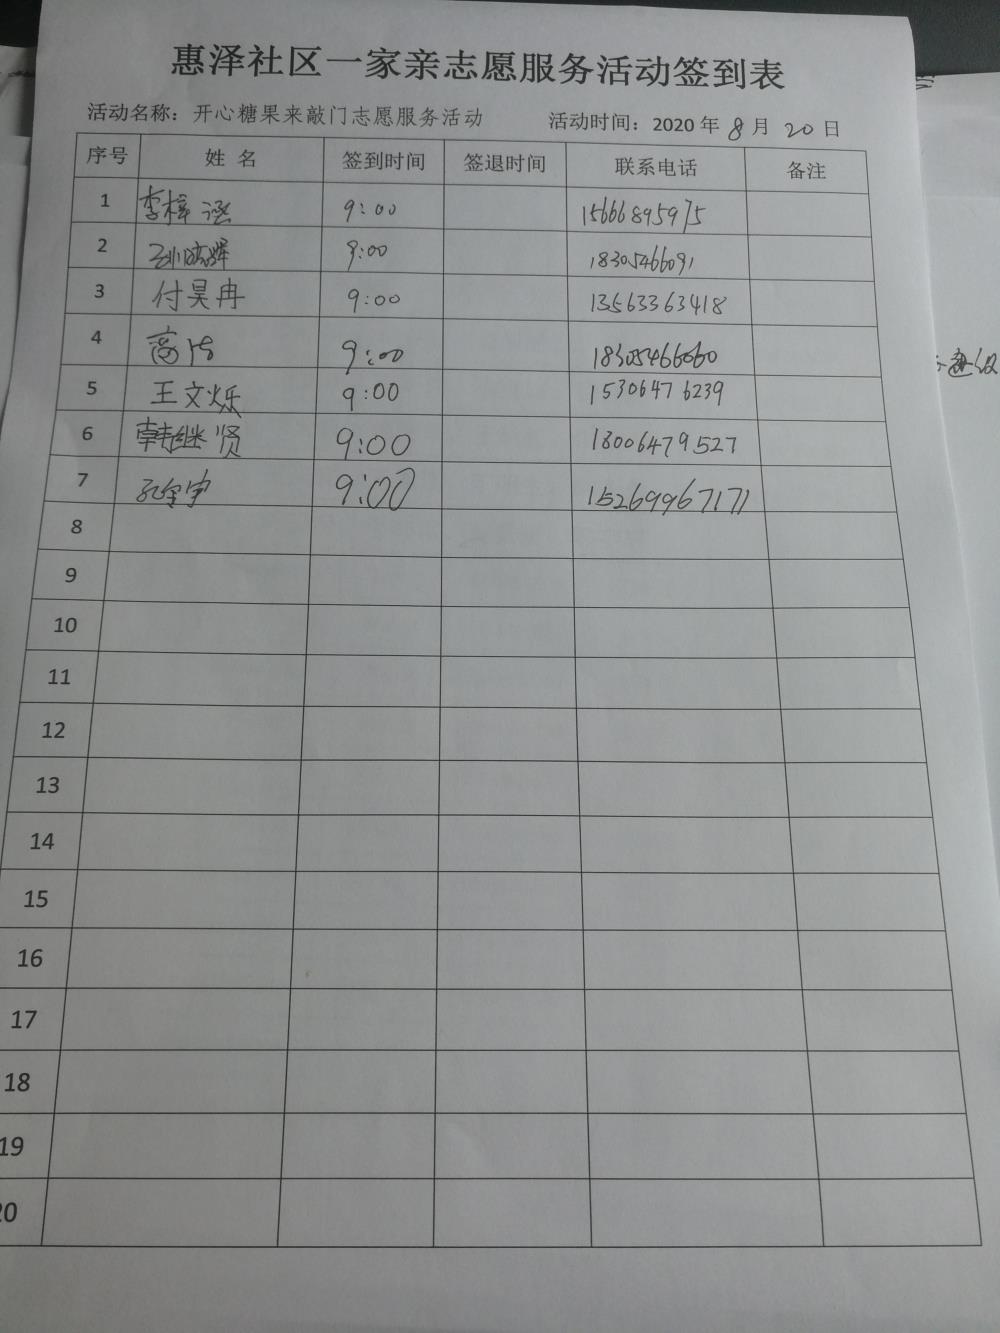 惠泽社区一家亲志愿服务活动签到表
活动名称：开心糖果来敲门志愿服务活动 活动时间：2020 年 8 月 20 日
序号 姓 名 签到时间 签退时间 联系电话 备注
1 李梓涵 9:00 15666895975
2 9:00 18305466091
3 付昊冉 9:00 13563363418
4 高洁 9:00 18305466060
5 王文烁 9:00 15306476239
6 韩继贤 9:00 18006479527
7 9:00 15269967171
8
9
10
11
12
13
14
15
16
17
18
19
20